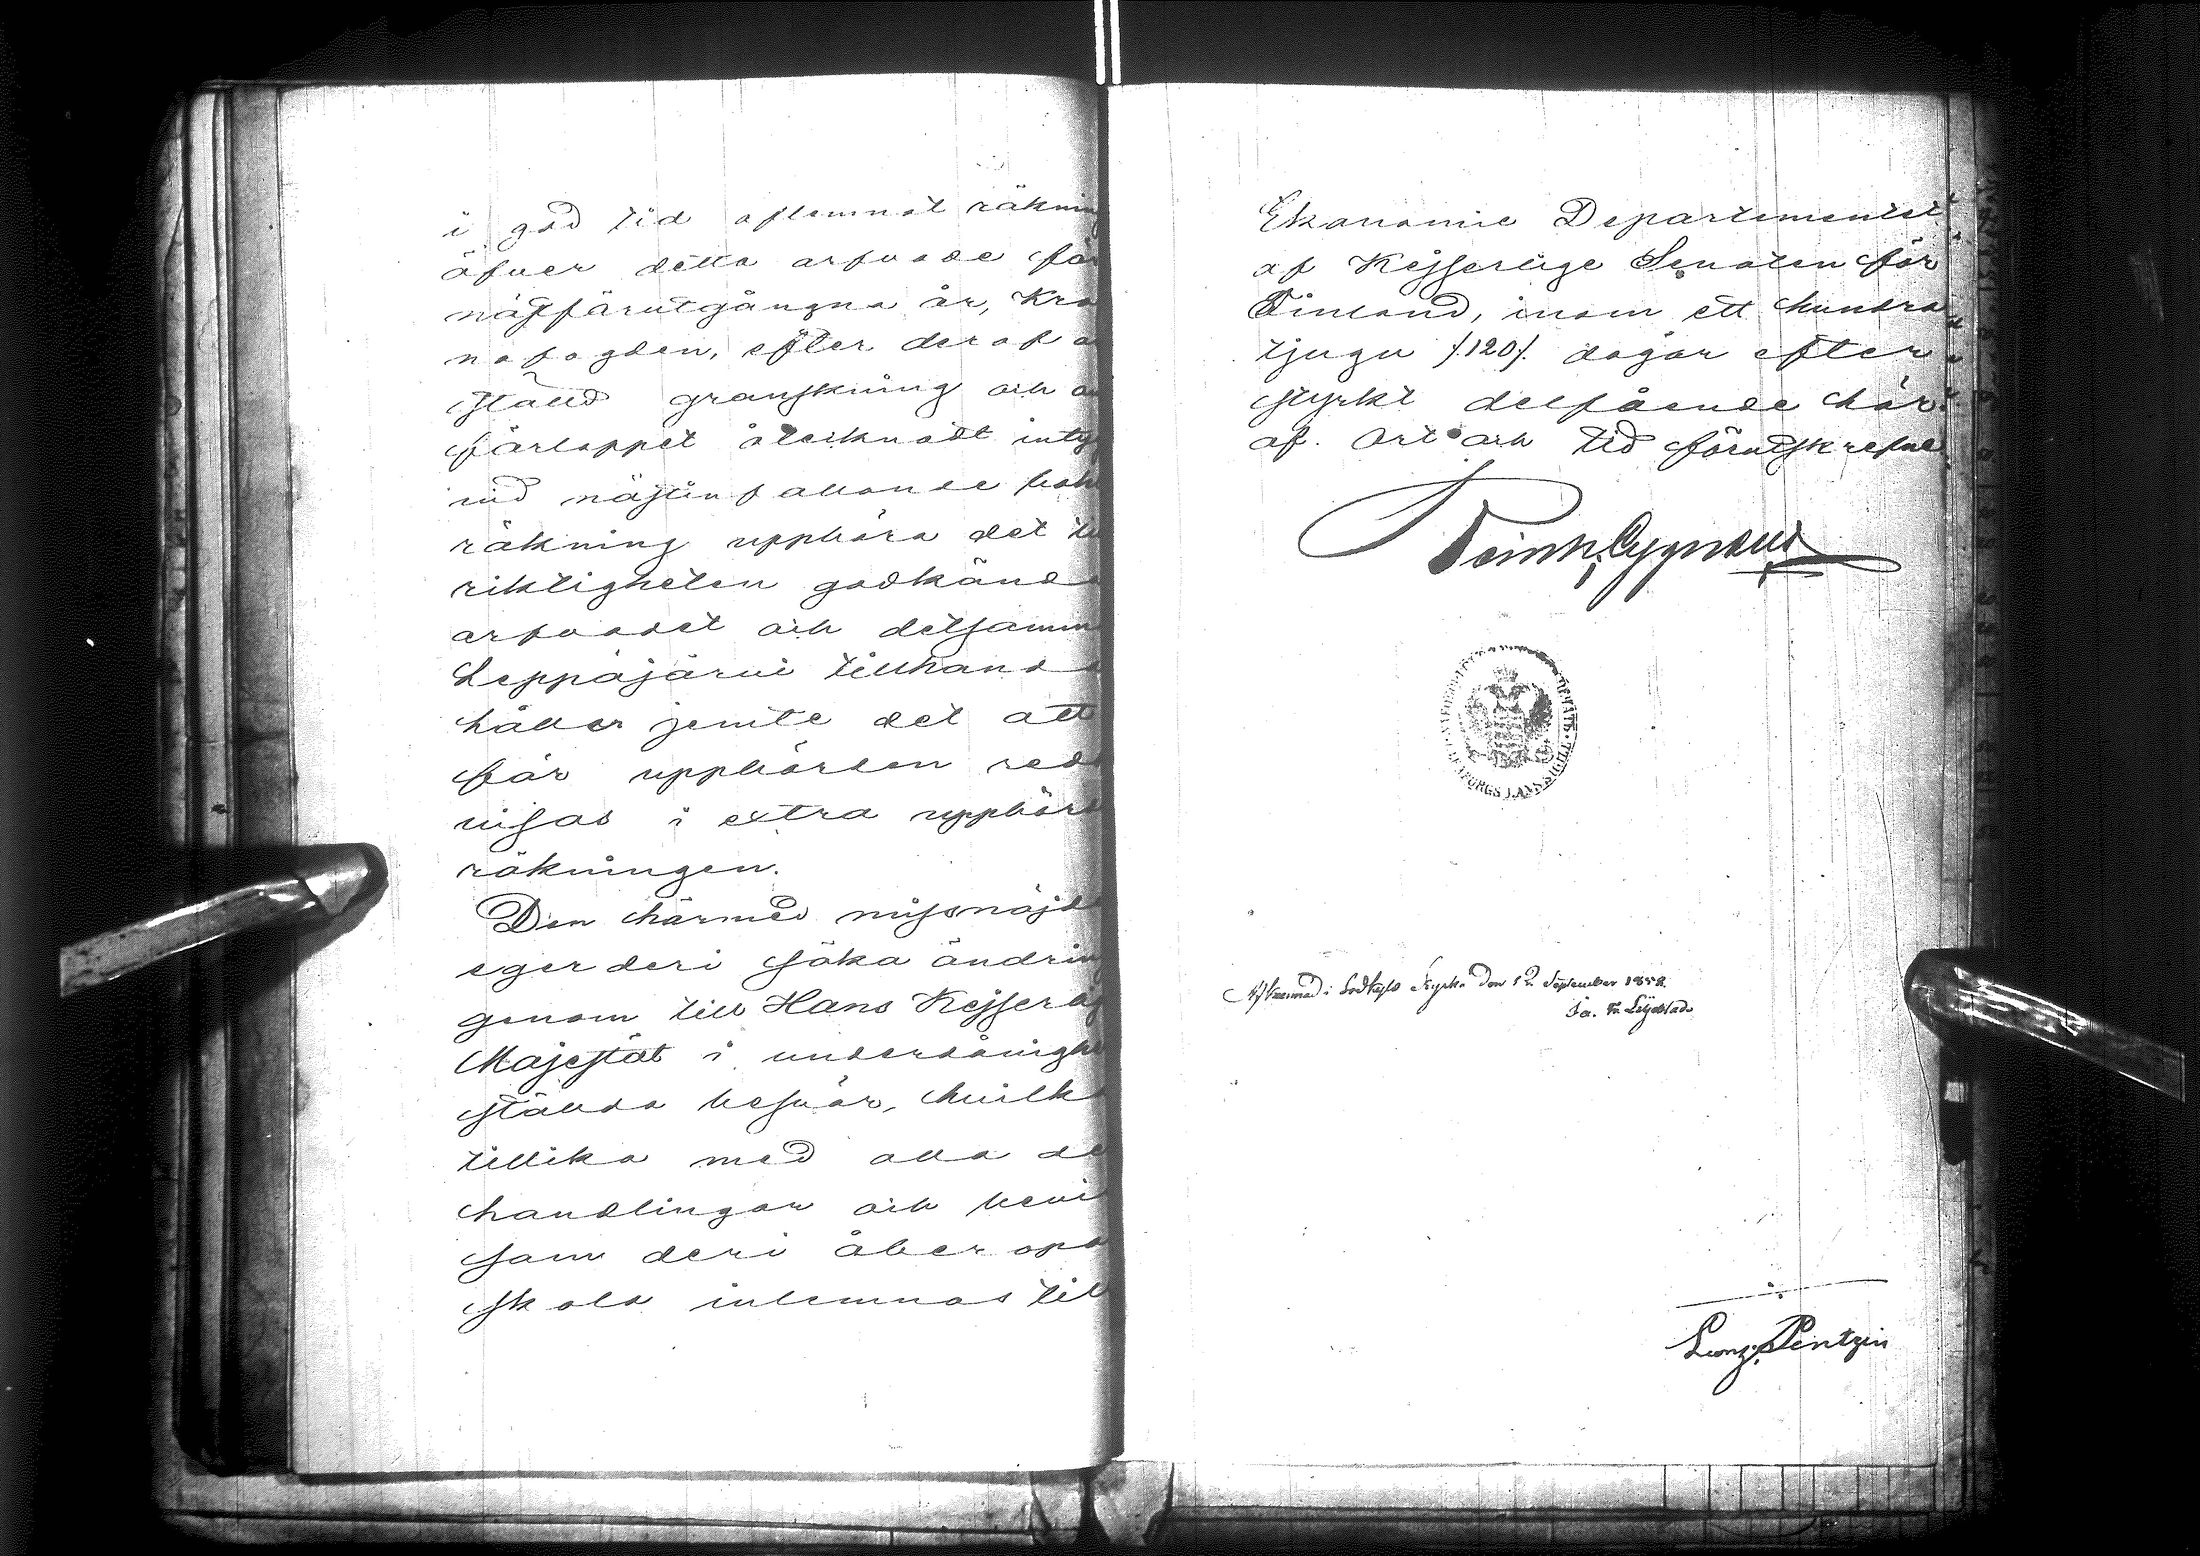 i god tid aflemnat räkning
öfver detta arfvode för
nästförutgångna år, Kro
nofogden, efter deraf an
ställd granskning och å
förloppet åtecknadt intyg
vid nästinfallande bok
räkning uppbära det till
riktigheten godkända
arfvodet och detsamma
Leppäjärvi tillhanda
håller jemte det att
för uppbörden redo
visas i extra uppbörds
räkningen.
Den härmed missnöjde
eger deri söka ändring
genom till Hans Kejserlig
Majestät i underdånighet
ställda besvär, hvilka
tillika med alla de
handlingar och bevis
som deri åberopas
skola inlemnas till
Ekonomie Departementet
af Kejserlige Senaten för
Finland, inom ett hundra
tjugu /:120:/ dagar efter
styrkt delfående här
af. Ort och tid förutskrefne.
Cygnæus
i Kyrka den 12 September 1858.